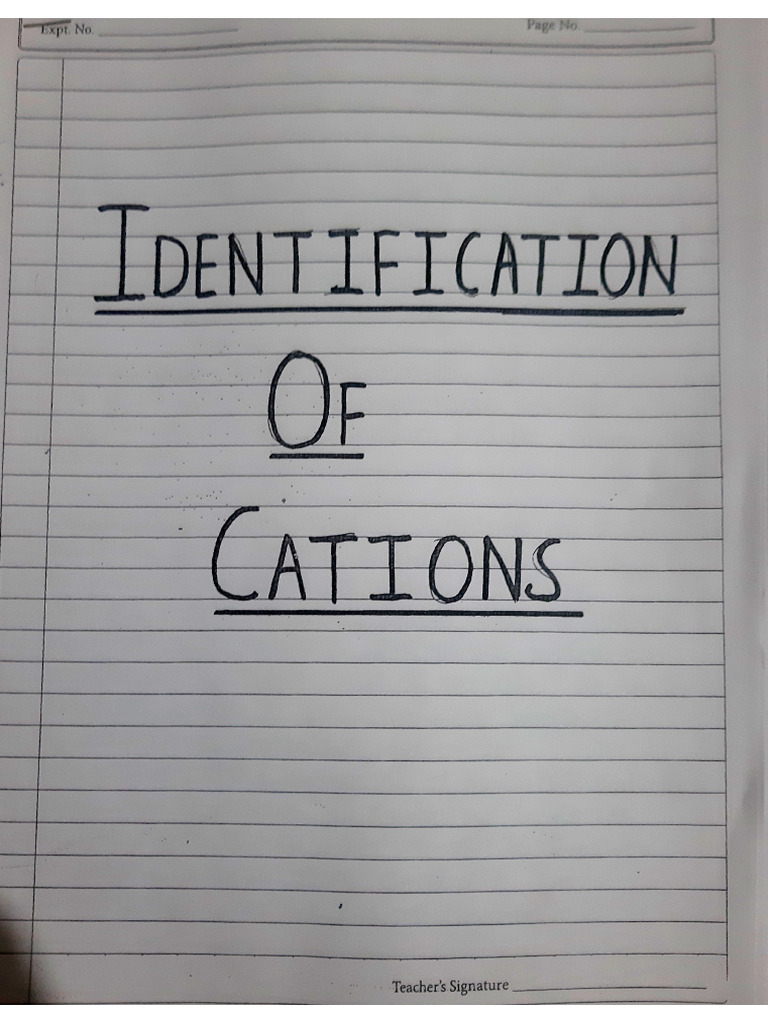 Expt. No.
Page No.
IDENTIFICATION
OF
CATIONS
Teacher's Signature